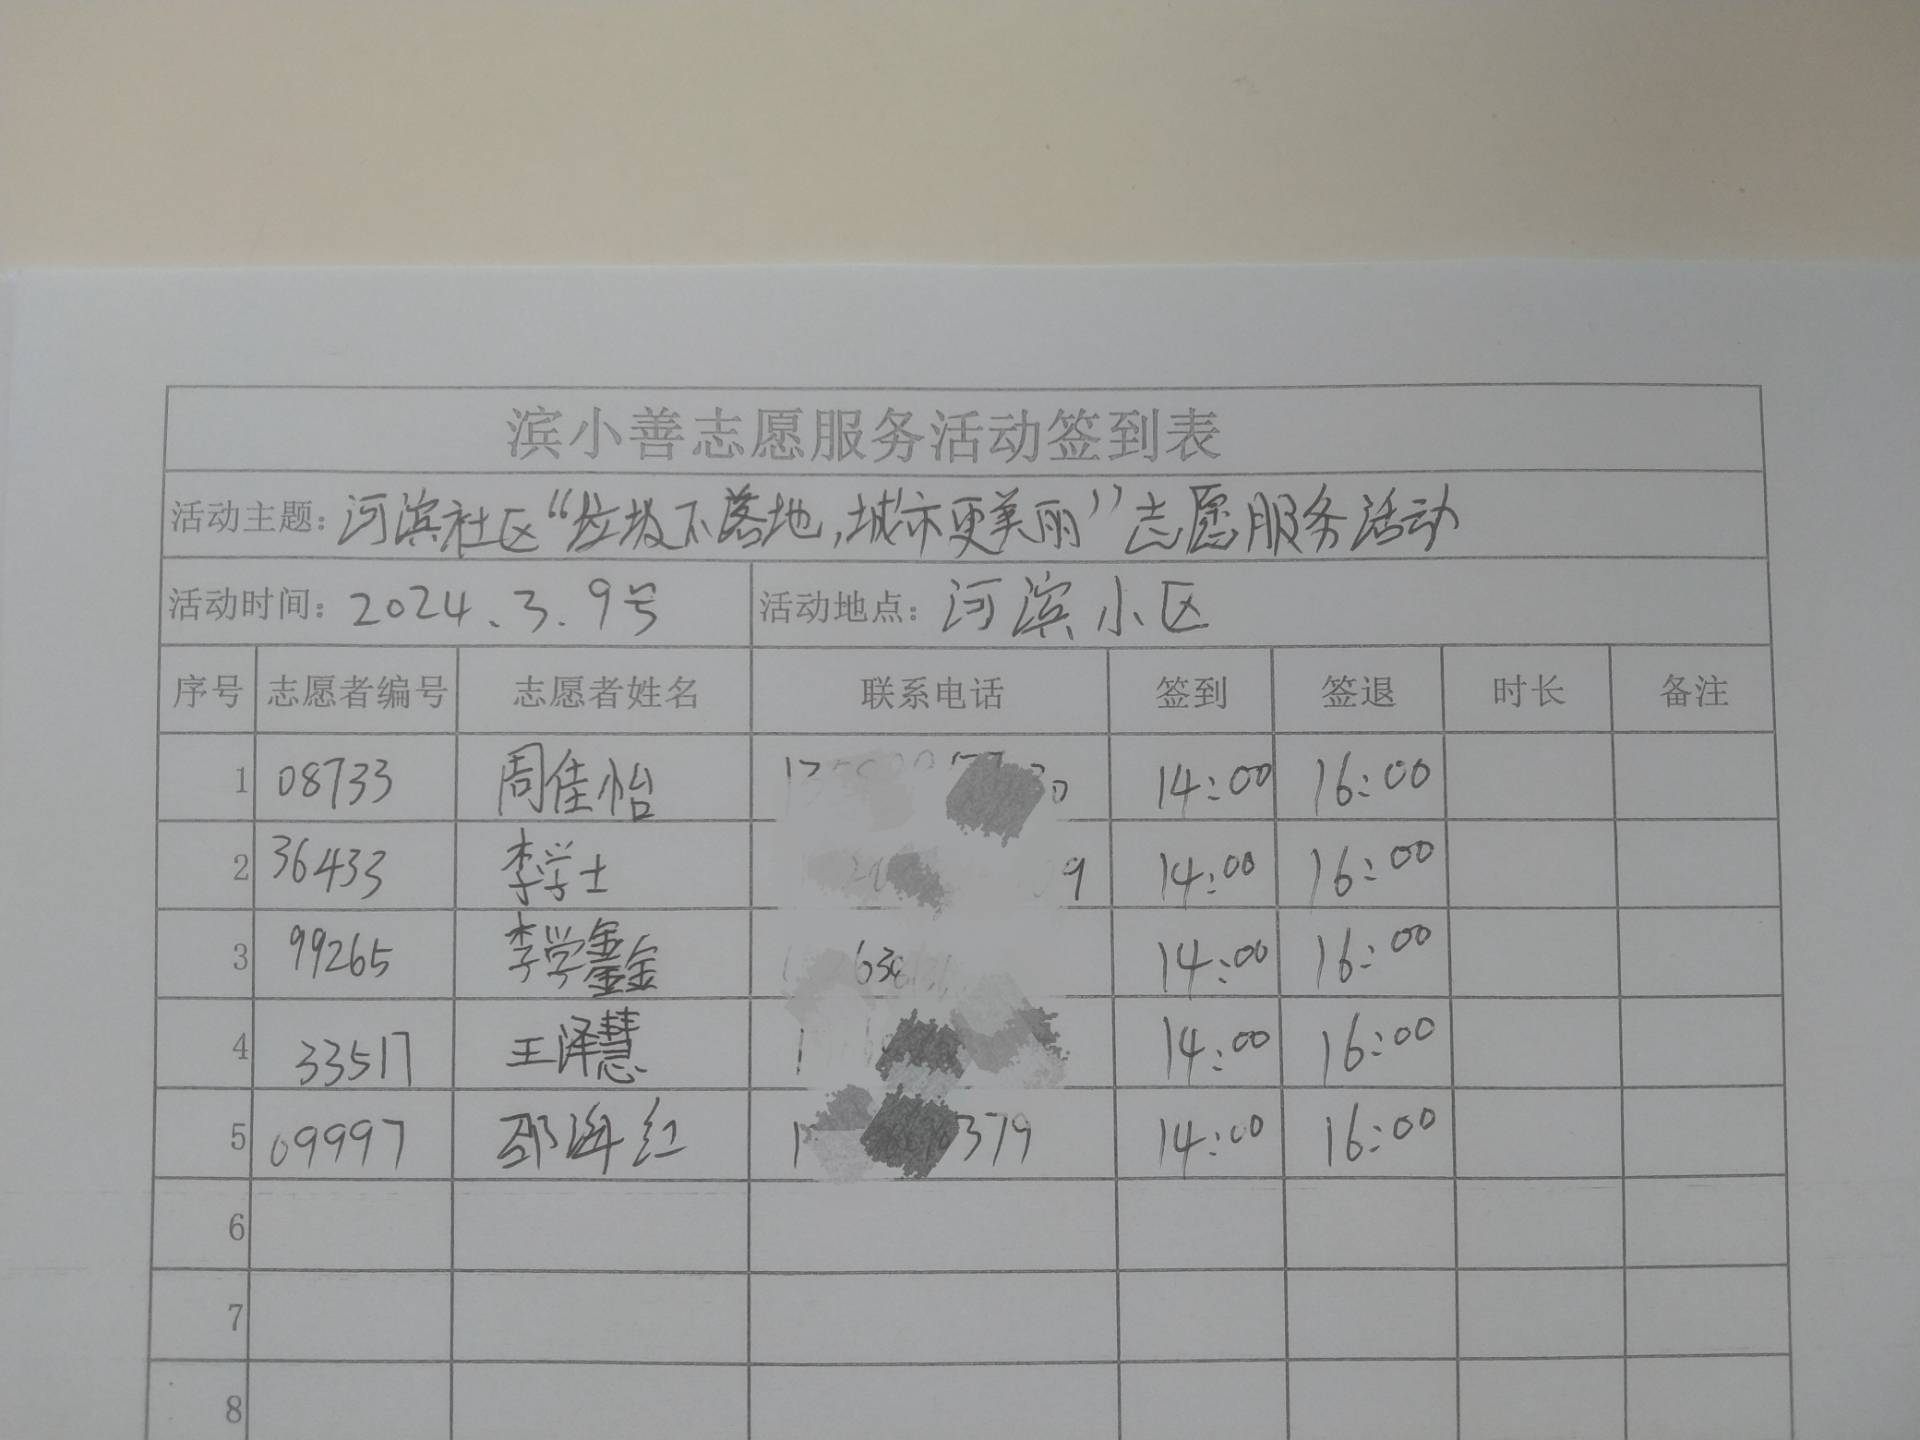 滨小善志愿服务活动签到表
活动主题：河滨社区“垃圾不落地，城市更美丽”志愿服务活动
活动时间：2024.3.9号 活动地点：河滨小区
序号 志愿者编号 志愿者姓名 联系电话 签到 签退 时长 备注
1 08733 周佳怡 14:00 16:00
2 36433 李学士 14:00 16:00
3 99265 李学鑫 14:00 16:00
4 33517 王泽慧 14:00 16:00
5 09997 邵海红 14:00 16:00
6
7
8